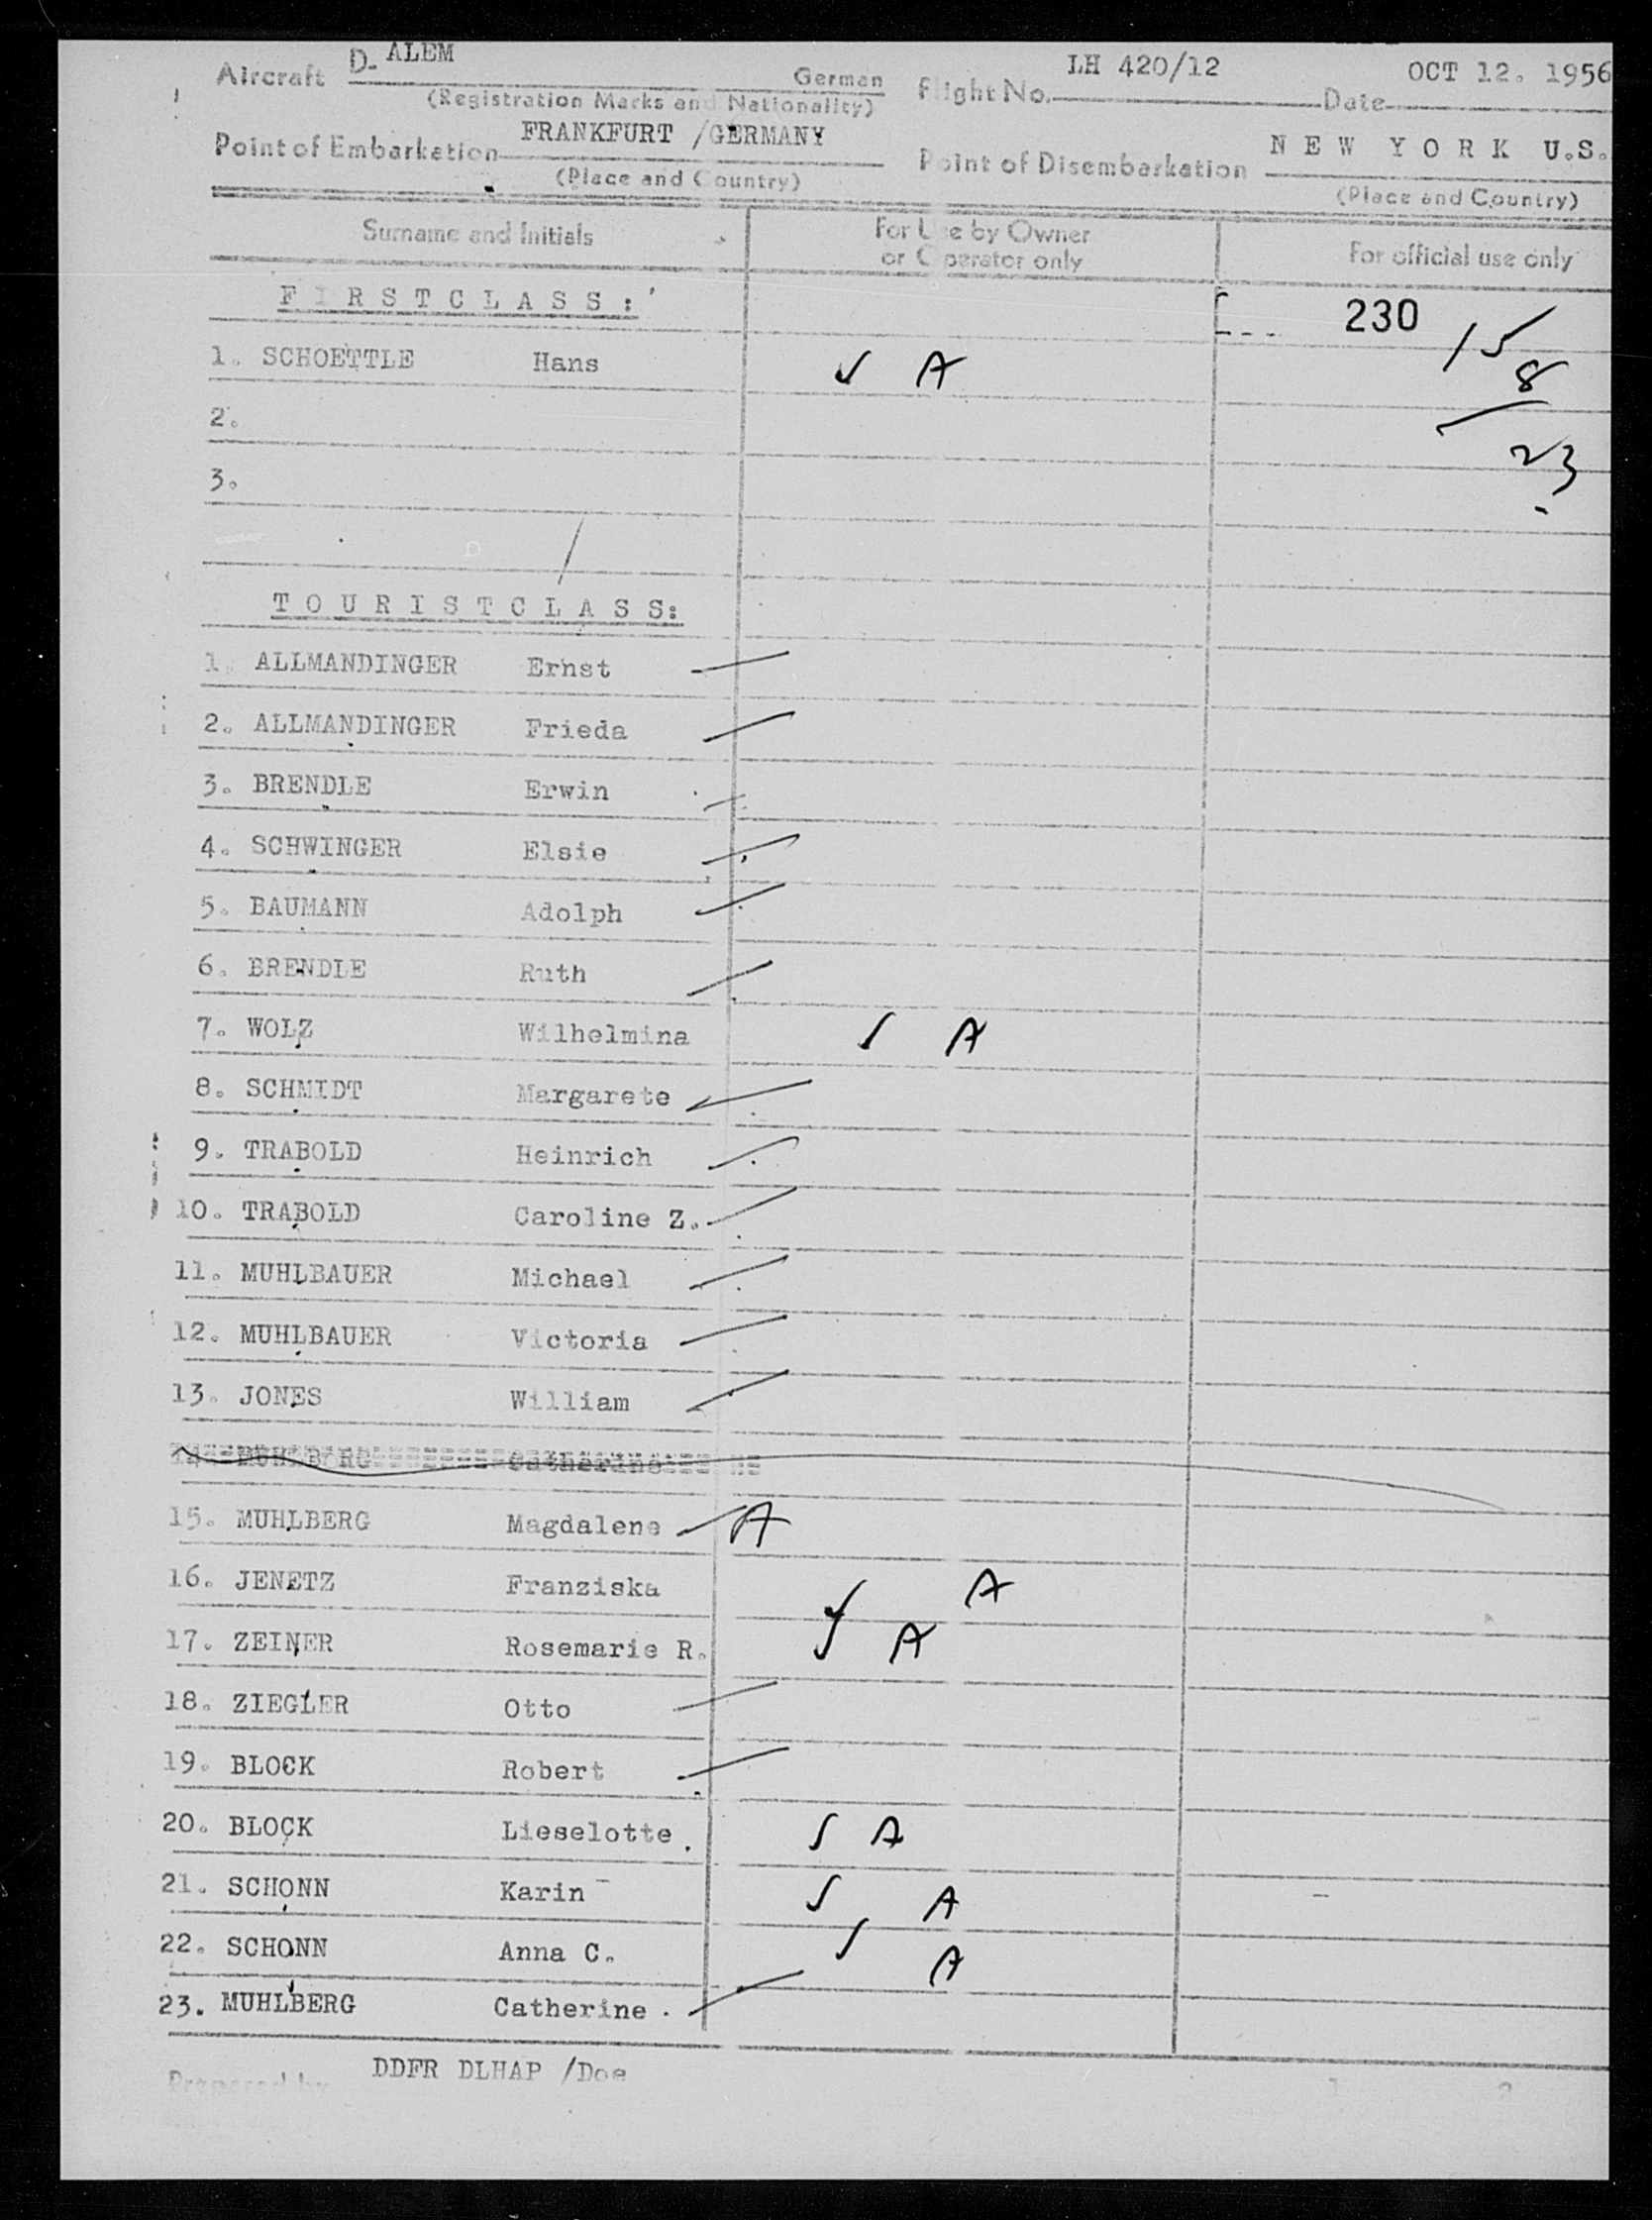 Aircraft D-ALEM German Flight No. LH 420/12 Date OCT 12. 1956
(Registration Marks and Nationality)
Point of Embarkation FRANKFURT /GERMANY Point of Disembarkation NEW YORK U.S.
(Place and Country) (Place and Country)
Surname and Initials For Use by Owner or Operator only For official use only
FIRSTCLASS: 230 15
1. SCHOETTLE Hans ✓ A 8
2. 23
3.
TOURISTCLASS:
1. ALLMANDINGER Ernst
2. ALLMANDINGER Frieda
3. BRENDLE Erwin
4. SCHWINGER Elsie
5. BAUMANN Adolph
6. BRENDLE Ruth
7. WOLZ Wilhelmina ✓ A
8. SCHMIDT Margarete
9. TRABOLD Heinrich
10. TRABOLD Caroline Z.
11. MUHLBAUER Michael
12. MUHLBAUER Victoria
13. JONES William
MUHLBERG Catherine
15. MUHLBERG Magdalene A
16. JENETZ Franziska ✓ A
17. ZEINER Rosemarie R. ✓ A
18. ZIEGLER Otto
19. BLOCK Robert
20. BLOCK Lieselotte ✓ A
21. SCHONN Karin ✓ A
22. SCHONN Anna C. ✓ A
23. MUHLBERG Catherine
Prepared by DDFR DLHAP /Doe